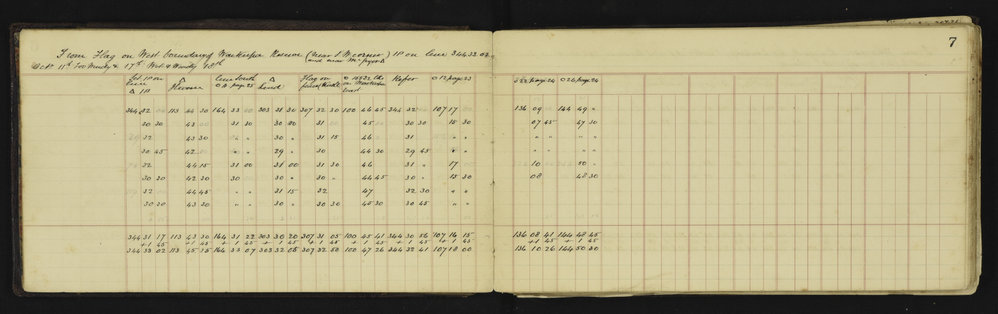 7
From Flag on West boundary of Reserve (near S W corner) IP on line 344.33.02
and near Mc
Oct 11th Too Windy & 17th Wet & Windy 18th
IP on line South Flag on Refer O 12 page 23 page 24 O 26 page 24
line O A page 25 on
△ IP
344 32 00 113 44 30 164 33 00 303 31 30 307 32 30 100 46 45 344 32 00 107 17 00 136 09 00 144 49 "
30 30 43 00 31 30 30 00 31 00 45 00 30 30 15 30 07 45 47 30
32 43 30 " " 30 " 31 15 46 31 " " " " " "
30 45 42 00 " " 29 " 30 44 30 29 45 " "
32 44 15 31 00 31 00 31 30 46 31 " 17 10 50 "
30 30 42 30 30 " 30 " 30 " 44 45 30 " 15 30 08 48 30
32 44 45 " " 31 15 32 47 32 30 " "
30 30 43 30 " " 30 " 30 30 45 30 30 45 " "
344 31 17 113 43 30 164 31 22 303 30 20 307 31 05 100 45 41 344 30 56 107 16 15 136 08 41 144 48 45
+1 45 +1 45 +1 45 +1 45 +1 45 +1 45 +1 45 +1 45 +1 45 +1 45
344 33 02 113 45 15 164 33 07 303 32 05 307 32 50 100 47 26 344 32 41 107 18 00 136 10 26 144 50 30